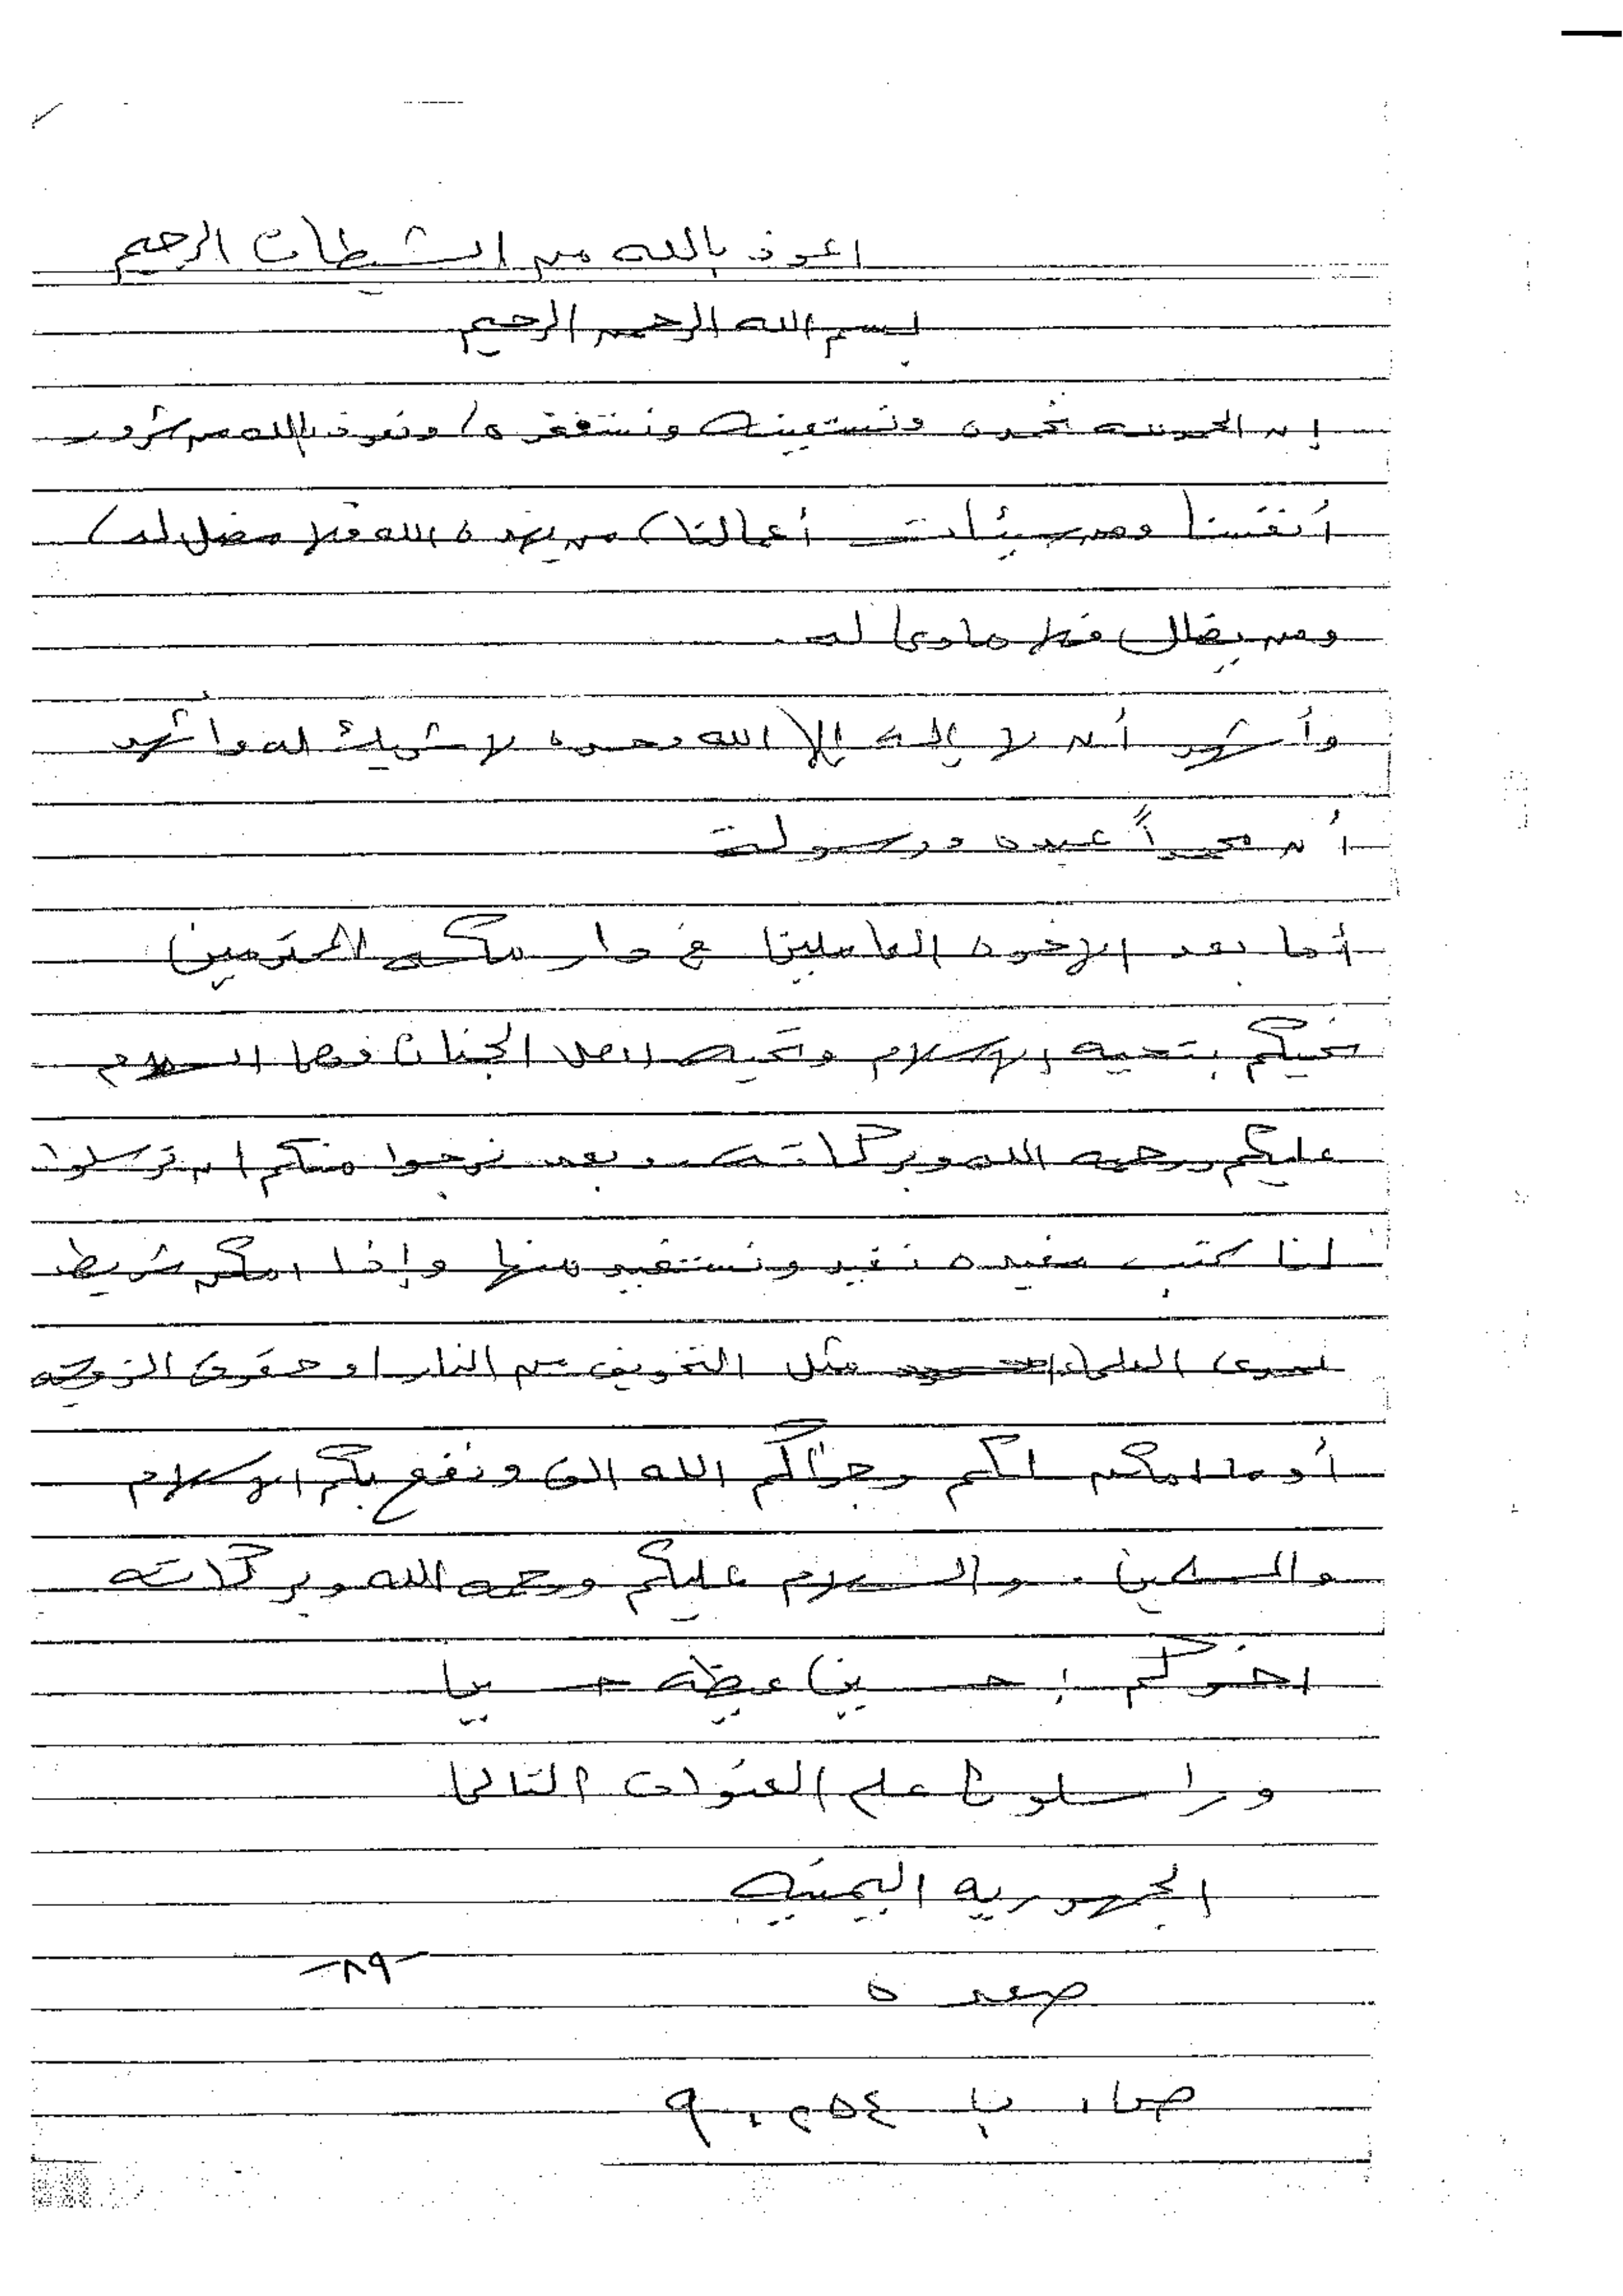 اعوذ بالله من الشيطان الرجيم
بسم الله الرحمن الرحيم
إن الحمد لله نحمده ونستعينه ونستغفره ونعوذ بالله من شرور
أنفسنا ومن سيئات أعمالنا من يهده الله فلا مضل له
ومن يضلل فلا هادي له.
وأشهد أن لا إله إلا الله وحده لا شريك له وأشهد
أن محمداً عبده ورسولة
أما بعد الإخوه العاملين في دار المحترمين
نحيكم بتحيه الإسلام وتحيه اهل الجنان فيها السلام
عليكم ورحمه الله وبركاته وبعد نرجوا منكم ان ترسلوا
لنا كتب مفيده نفيد ونستفيد منها وإذا امكن شريط
العلماء مثل التخويف من النار او حقوق الزوجه
أو ما امكن لكم وجزاكم الله ونفع بكم الإسلام
والمسلمين. والسلام عليكم ورحمه الله وبركاته
اخوكم: حسين حسين
وراسلوني على العنوان التالي
الجمهوريه اليمنيه
-٨٩-
صعده